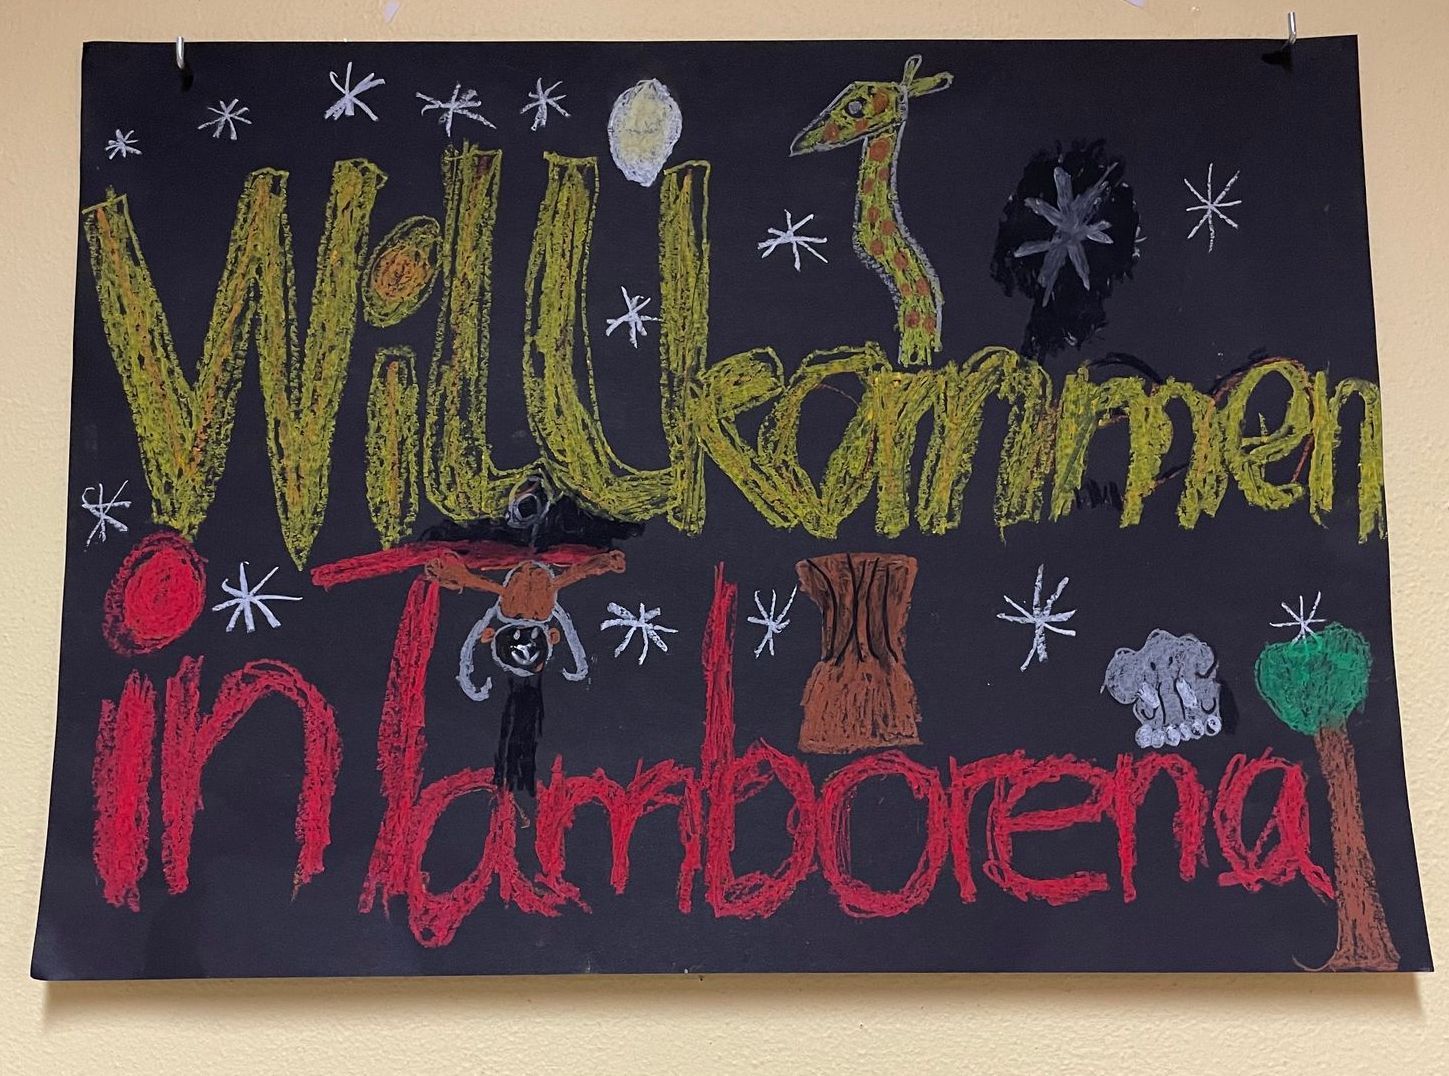 Willkommen
in Tamborena